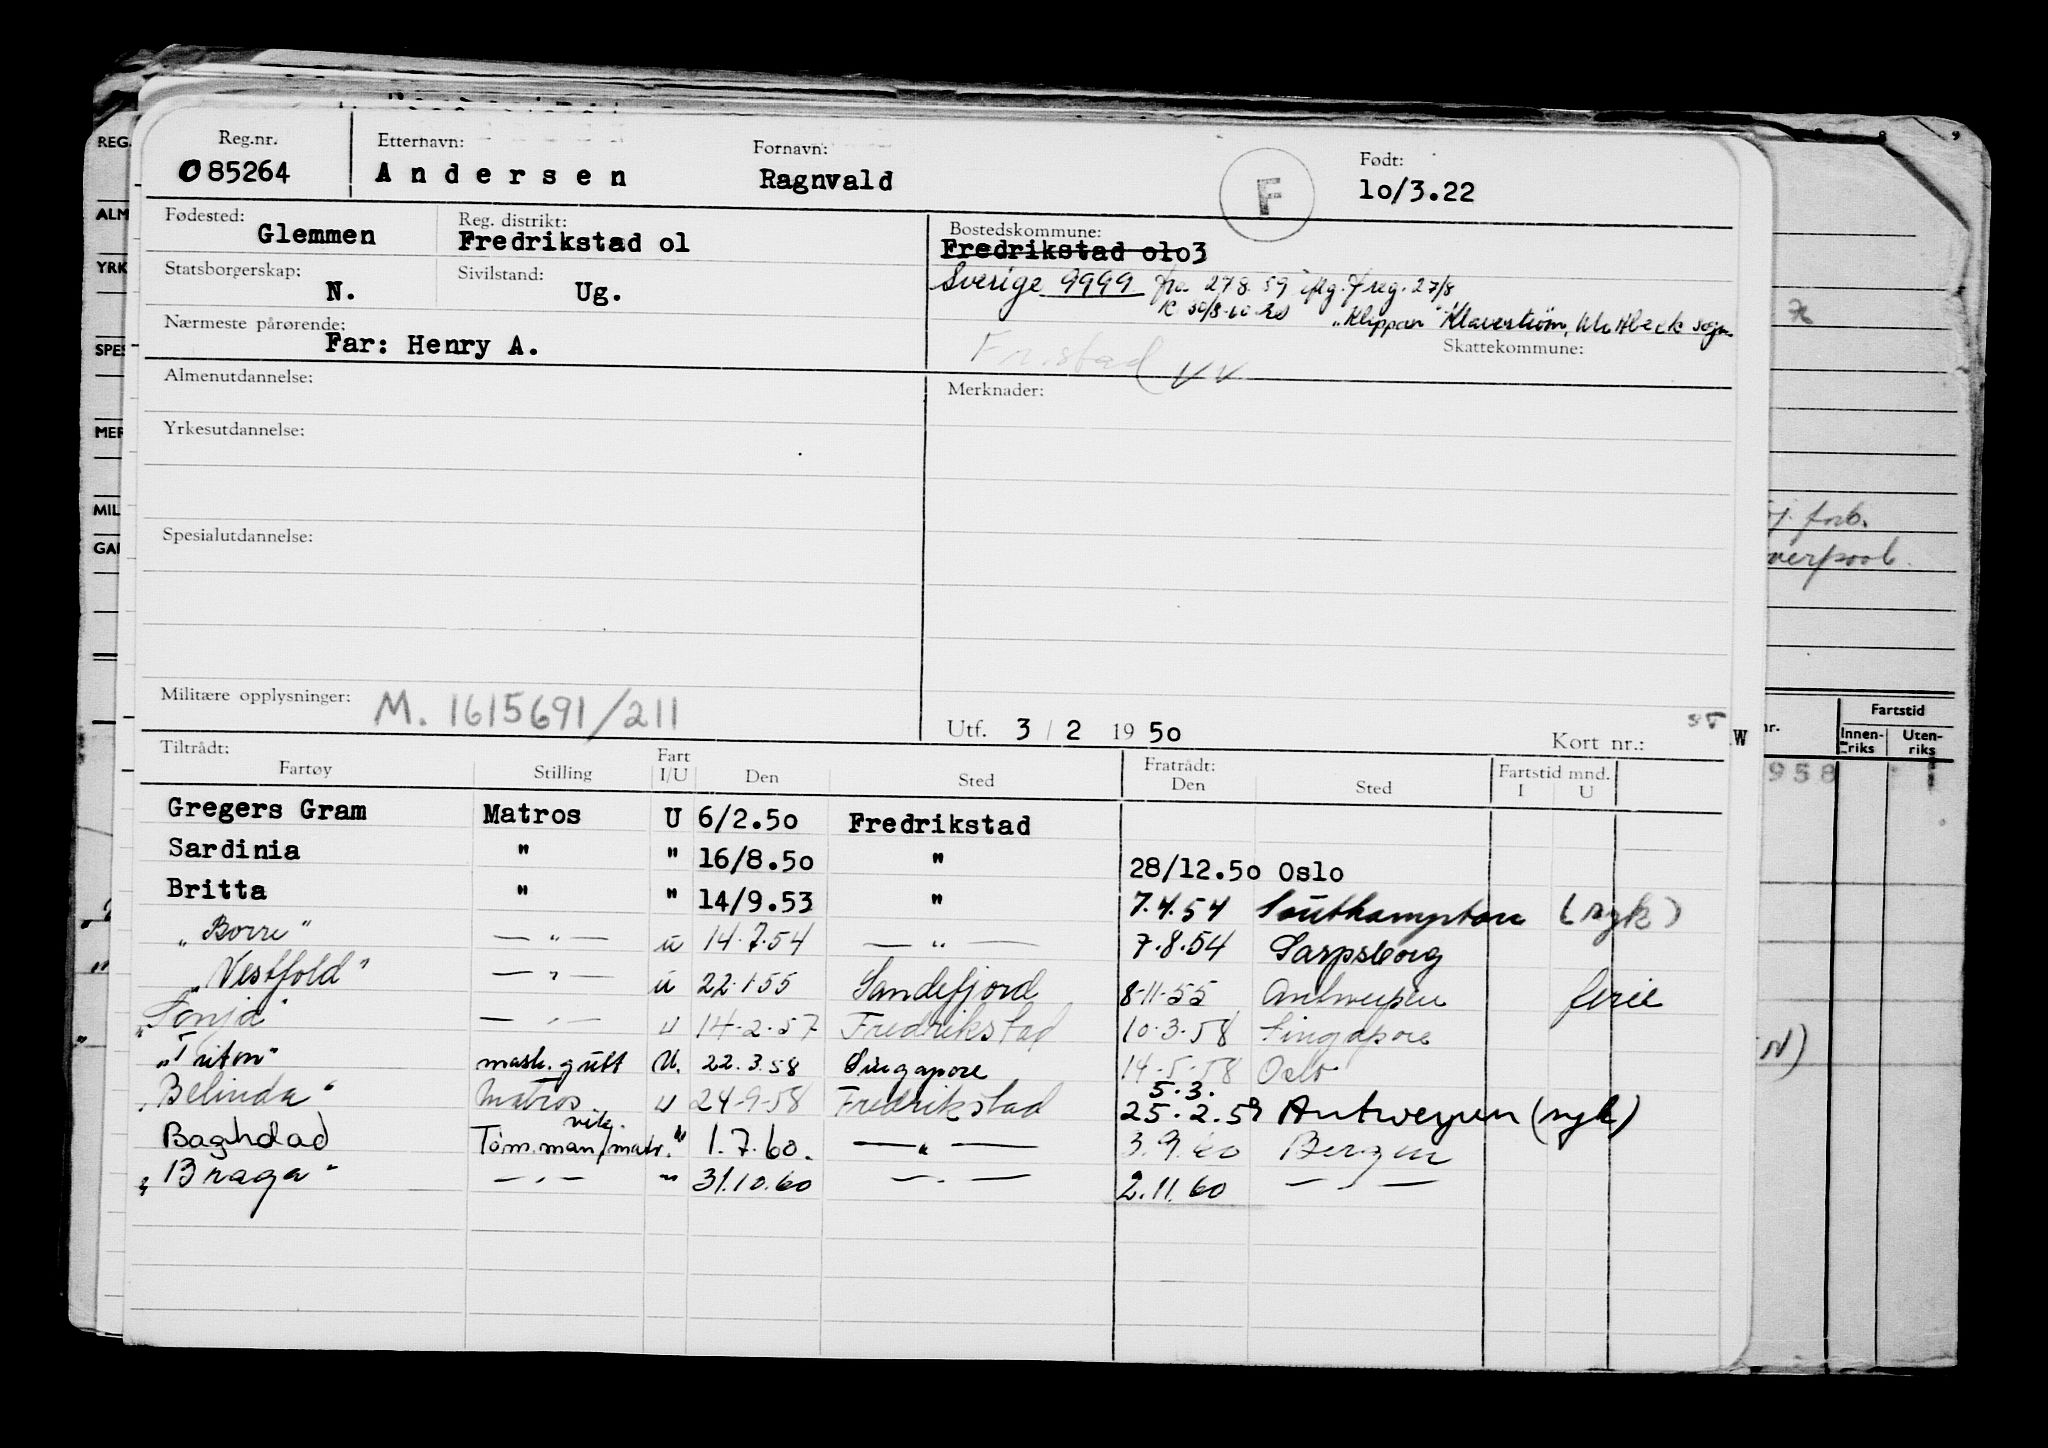 Reg.nr. Etternavn: Fornavn: Født:
085264 Andersen Ragnvald F 10/3.22
Fødested: Glemmen Reg. distrikt: Fredrikstad 01 Bostedskommune: Fredrikstad 0103
Sverige 9999 fra 27.8.59 iflg. freg. 27/8
Statsborgerskap: N. Sivilstand: Ug.
"Klippan" Klaveström, sogn
Nærmeste pårørende: Far: Henry A. Skattekommune:
Fr.stad
Almenutdannelse: Merknader:
Yrkesutdannelse:
Spesialutdannelse:
Militære opplysninger: M. 1615691/211
Utf. 3 / 2 19 50 Kort nr.:
Tiltrådt: Fratrådt:
Fartøy Stilling Fart I/U Den Sted Den Sted Fartstid mnd. I U
Gregers Gram Matros U 6/2.50 Fredrikstad
Sardinia " " 16/8.50 " 28/12.50 Oslo
Britta " " 14/9.53 " 7.4.54 Southampton (syk)
"Borre" — " — u 14.7.54 — " — 7.8.54 Sarpsborg
"Vestfold" — " — u 22.1.55 Sandefjord 8-11-55 Antwerpen ferie
"Sonja" — " — u 14-2-57 Fredrikstad 10-3-58 Singapore
"Triton" mask. gutt U. 22.3.58 Singapore 14-5-58 Oslo
5.3.
"Belinda" Matros u 24-9-58 Fredrikstad 25.2.59 Antwerpen (syk)
vik.
Baghdad Töm.man/matr. " 1.7.60. — " — 3.9.60 Bergen
"Braga" — " — " 31.10.60 — " — 2.11.60 — " —
REG.
ALM
YRK
SPES
MER
MIL
GAR
forb.
Fartstid
Innenriks Utenriks
958